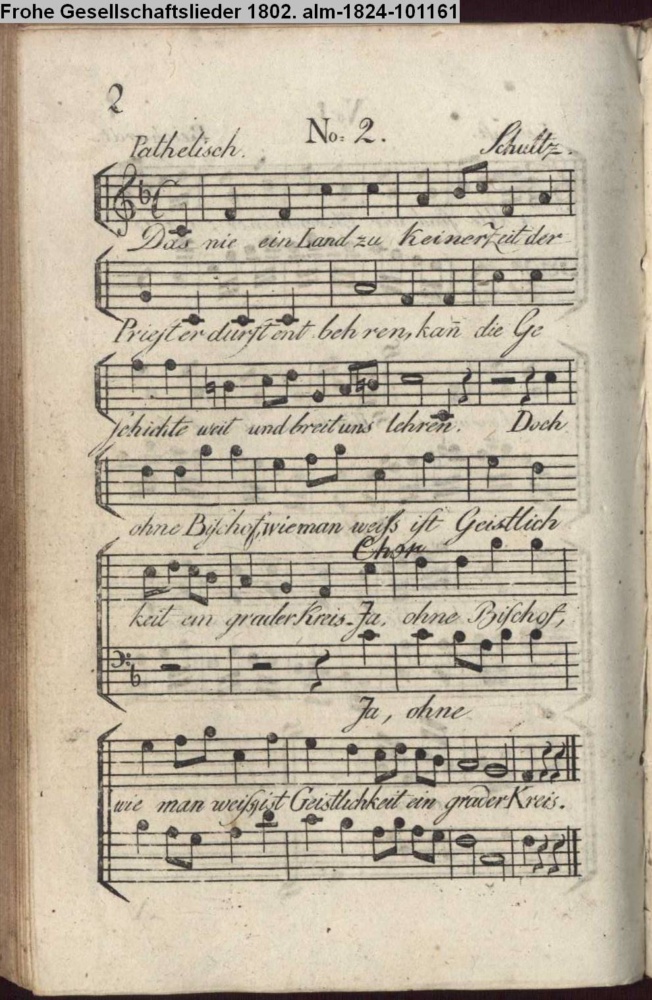 Frohe Gesellschaftslieder 1802. alm-1824-101161
2
No. 2.
Pathetisch. Schultz.
Das nie ein Land zu keiner Zeit der
Priester durft ent behren, kañ die Ge
schichte weit und breit uns lehren. Doch
ohne Bischof, wie man weiss ist Geistlich
Chor
keit ein grader Kreis. Ja, ohne Bischof,
Ja, ohne
wie man weiss, ist Geistlichkeit ein grader Kreis.